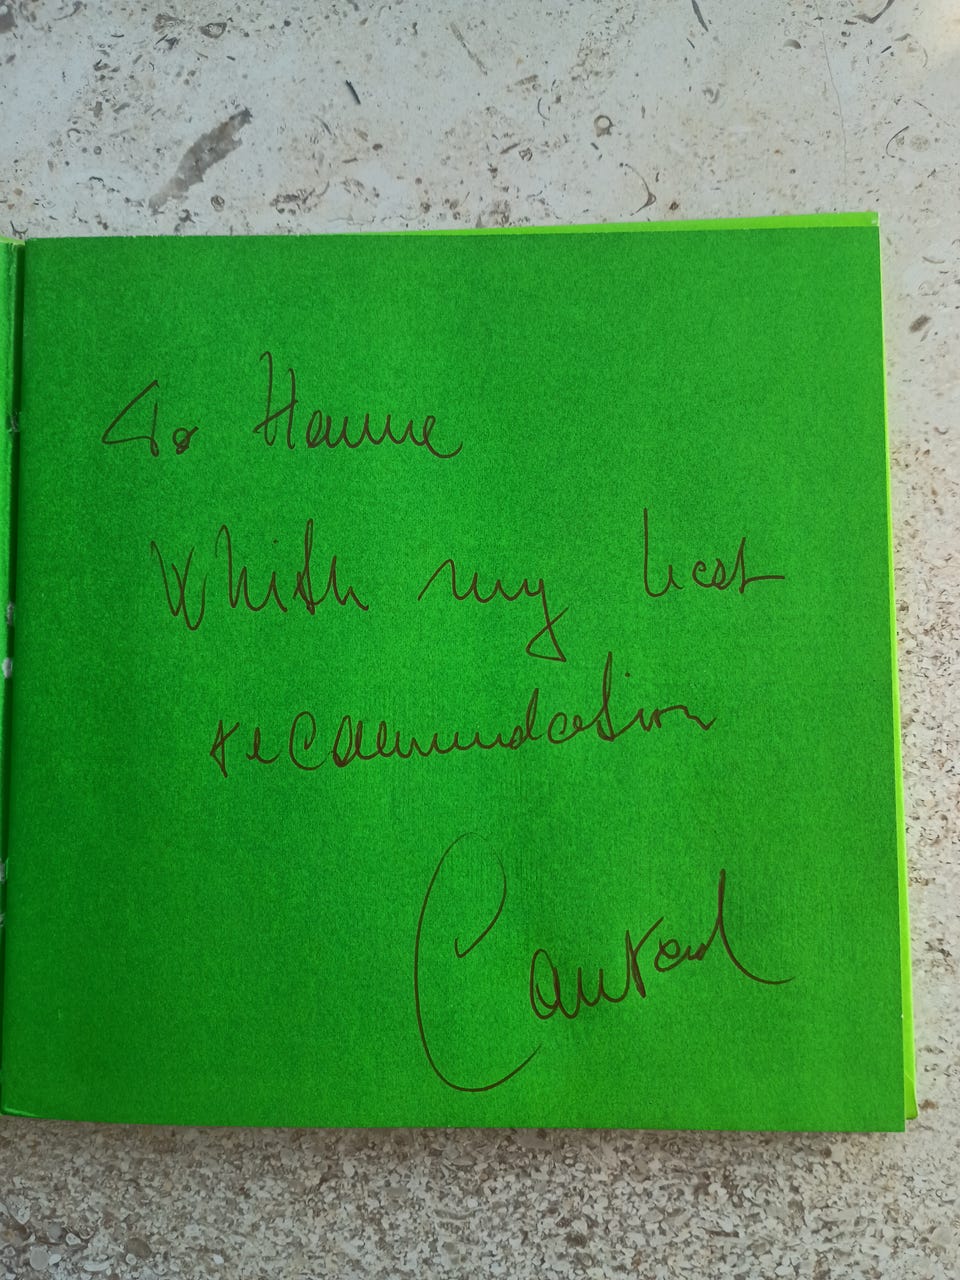 To Hanne
Whith my best
recommendation
Conrad